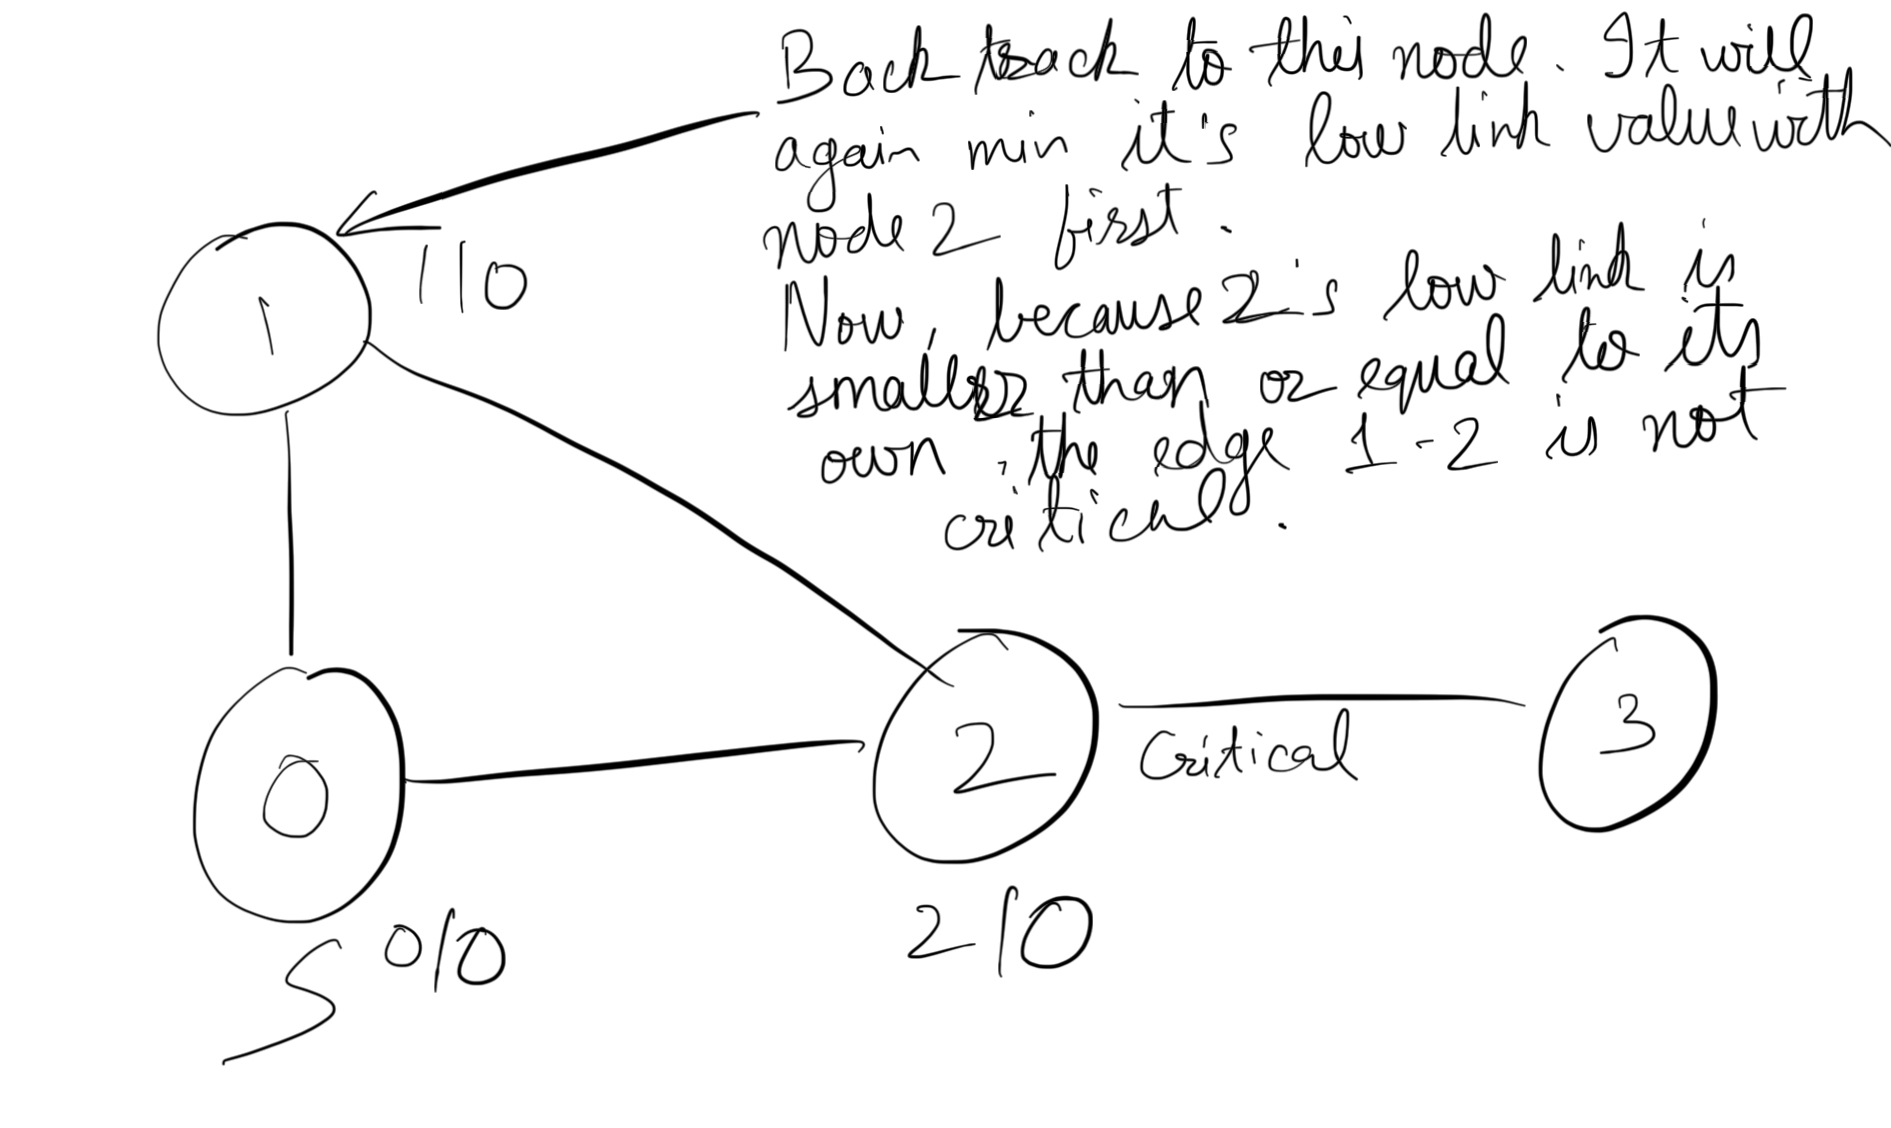 Back track to this node. It will
again min it's low link value with
node 2 first.
Now, because 2's low link is
smaller than or equal to its
own, the edge 1-2 is not
critical.
1/0
1
2
Critical
3
0
S 0/0
2/0